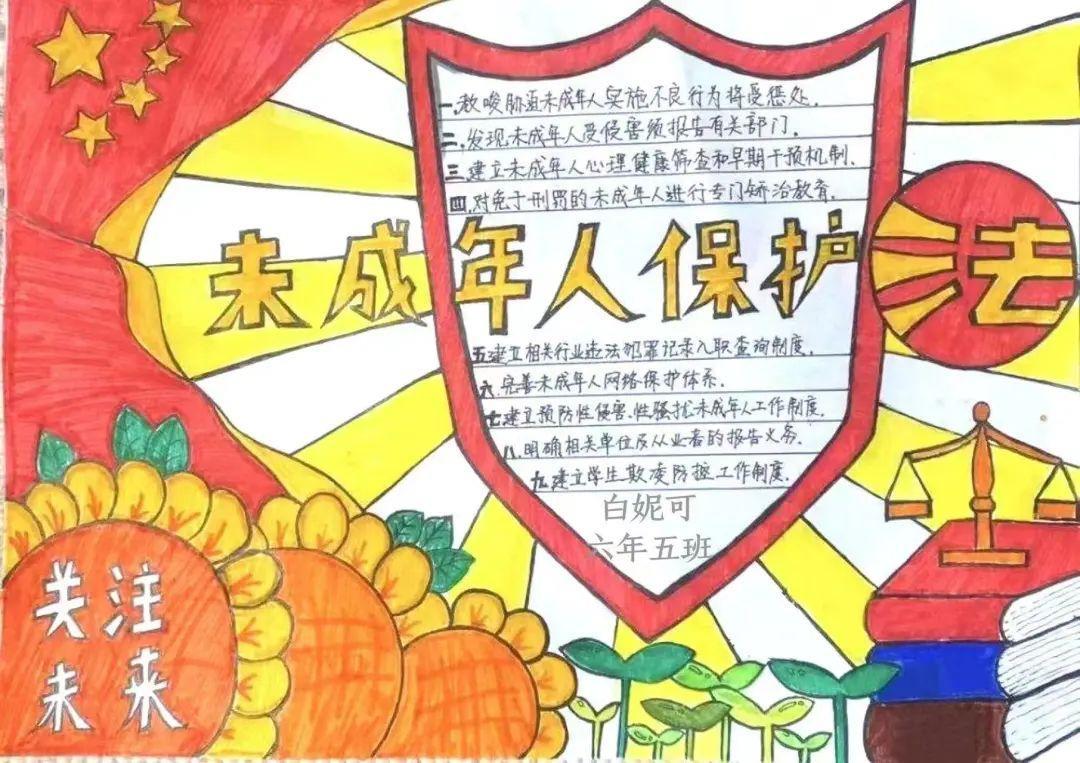 一.教唆胁迫未成年人实施不良行为将受惩处.
二.发现未成年人受侵害须报告有关部门.
三.建立未成年人心理健康筛查和早期干预机制.
四.对免于刑罚的未成年人进行专门矫治教育.
未成年人保护法
五建立相关行业违法犯罪记录入职查询制度.
六.完善未成年人网络保护体系.
七建立预防性侵害.性骚扰未成年人工作制度.
八.明确相关单位及从业者的报告义务.
九.建立学生欺凌防控工作制度.
白妮可
六年五班
关注
未来